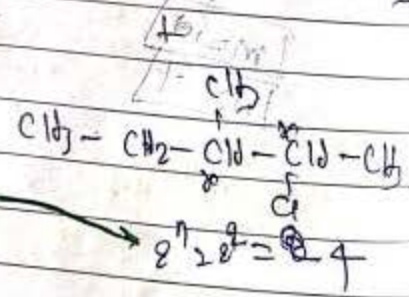 CH3
CH3 - CH2 - CH - CH - CH3
Cl
2^n = 2^2 = 4